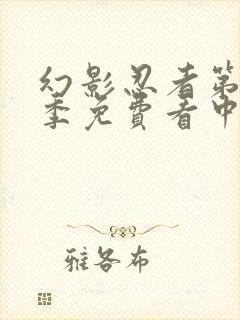 幻影忍者第
季免费看中
雅各布